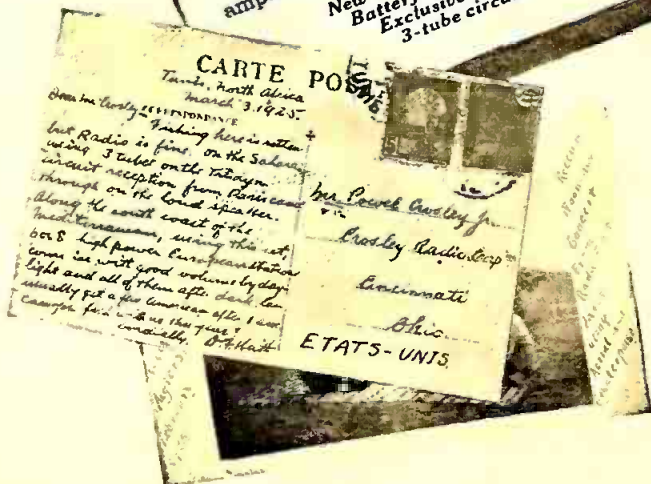 amp
New
Battery
Exclusive
3-tube circu
CARTE POS
TUNIS
Tunis, North Africa
March 3, 1925.
Dear Mr. Crosley
CORRESPONDANCE
Fishing here is rotten
but Radio is fine. On the Sahara
using 3 tubes on the Trirdyn
circuit reception from Paris came
through on the loud speaker.
Along the south coast of the
Mediterranean, using this set,
6 or 8 high power European stations
come in with good volume by day-
light and all of them after dark. Can
usually get a few American after 1 a.m.
cordially,
Mr. Powel Crosley Jr.
Crosley Radio Corp
Cincinnati
Ohio.
ETATS-UNIS.
Noon
Concert